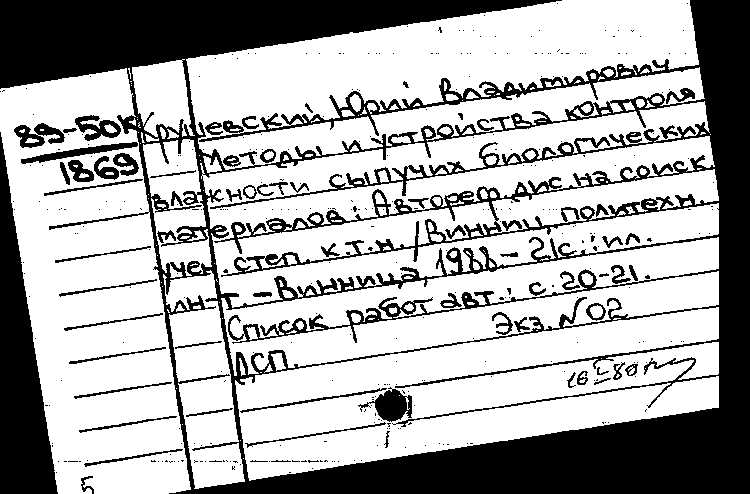 89-50к
1869
Крушевский, Юрий Владимирович
Методы и устройства контроля
влажности сыпучих биологических
материалов: Автореф. дис. на соиск.
учен. степ. к.т.н. / Винниц. политехн.
ин-т. - Винница, 1988. - 21с.: ил.
Список работ авт.: с. 20-21.
Экз. №02
ДСП.
5